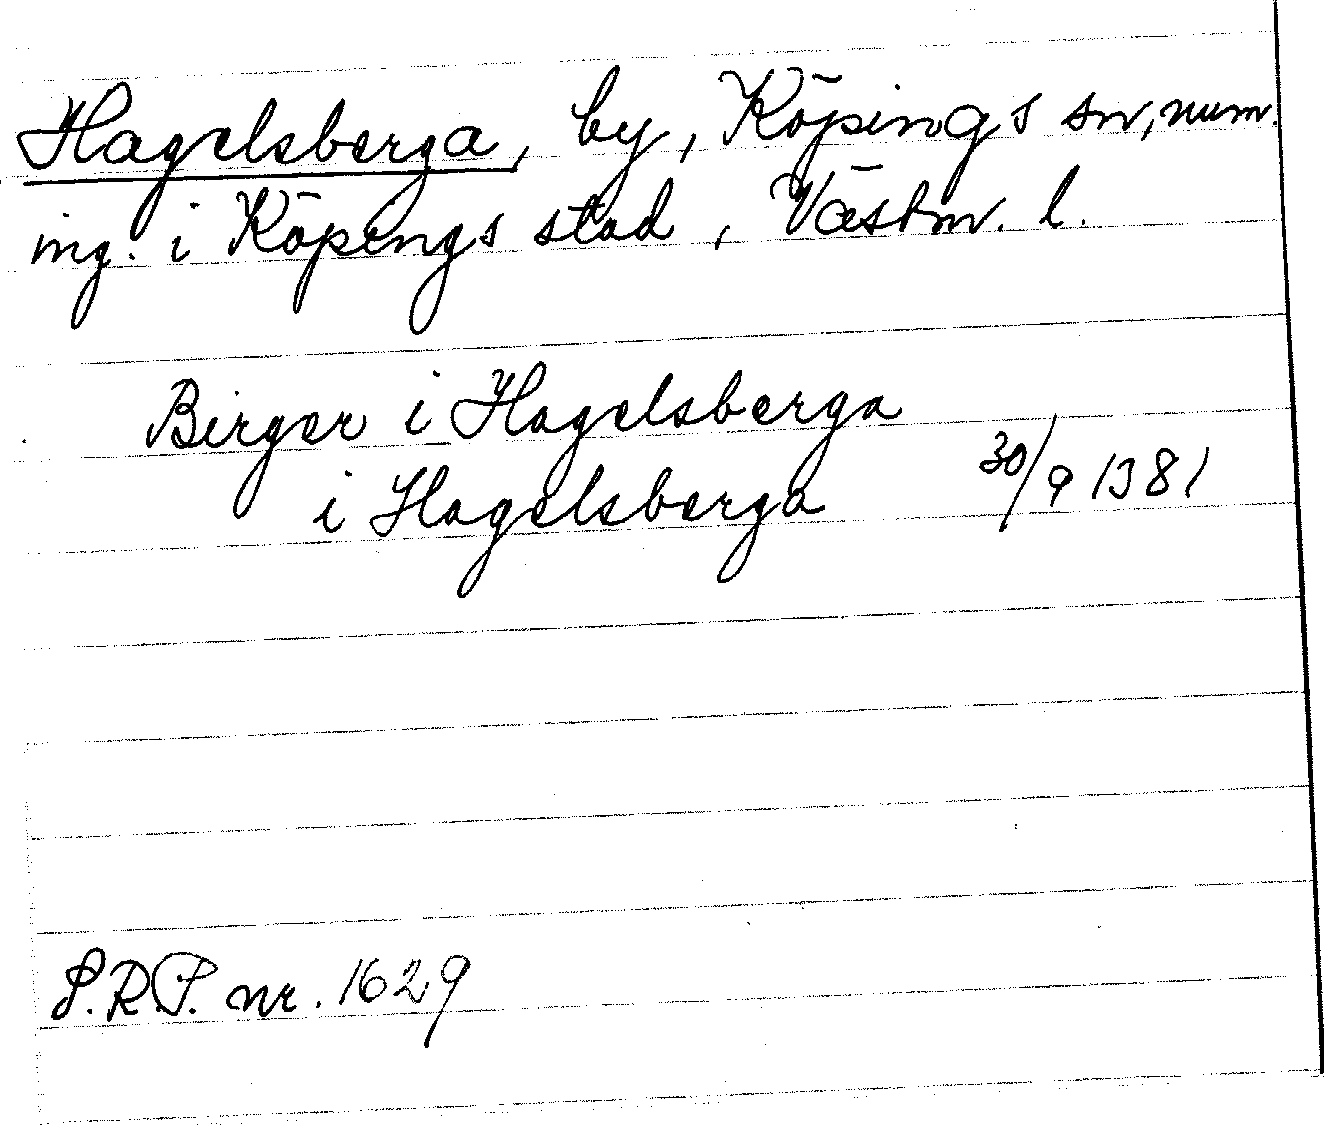 Hagelsberga, by, Köpings sn, num.
ing. i Köpings stad, Västm. l.
Birger i Hagelsberga
i Hagelsberga 30/9 1381
S.R.P. nr. 1629